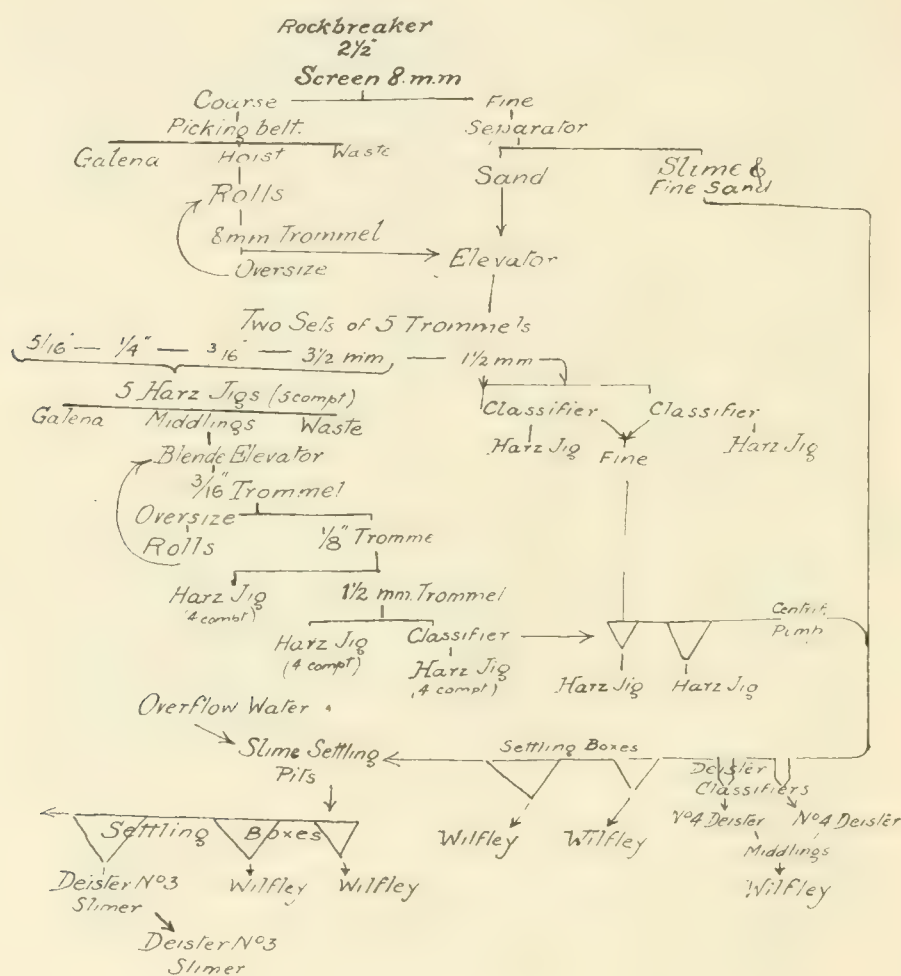 Rockbreaker
2½"
Screen 8.m.m
Course Fine
Picking belt. Separator
Galena Hoist Waste
Sand Slime &
Fine Sand
Rolls
8mm Trommel
Oversize Elevator
Two Sets of 5 Trommels
5/16" — ¼" — 3/16" — 3½ mm — 1½ mm
5 Harz Jigs (5 compt)
Galena Middlings Waste
Classifier Classifier
Harz Jig Fine Harz Jig
Blende Elevator
3/16" Trommel
Oversize
Rolls 1/8" Tromme
Harz Jig 1½ mm. Trommel
(4 compt)
Harz Jig Classifier
(4 compt) Harz Jig
(4 compt)
Centrif.
Pump
Harz Jig Harz Jig
Overflow Water
Slime Settling
Pits
Settling Boxes
Deister
Classifiers
Wilfley Wilfley Nº4 Deister Nº4 Deister
Middlings
Wilfley
Settling Boxes
Deister Nº3 Wilfley Wilfley
Slimer
Deister Nº3
Slimer